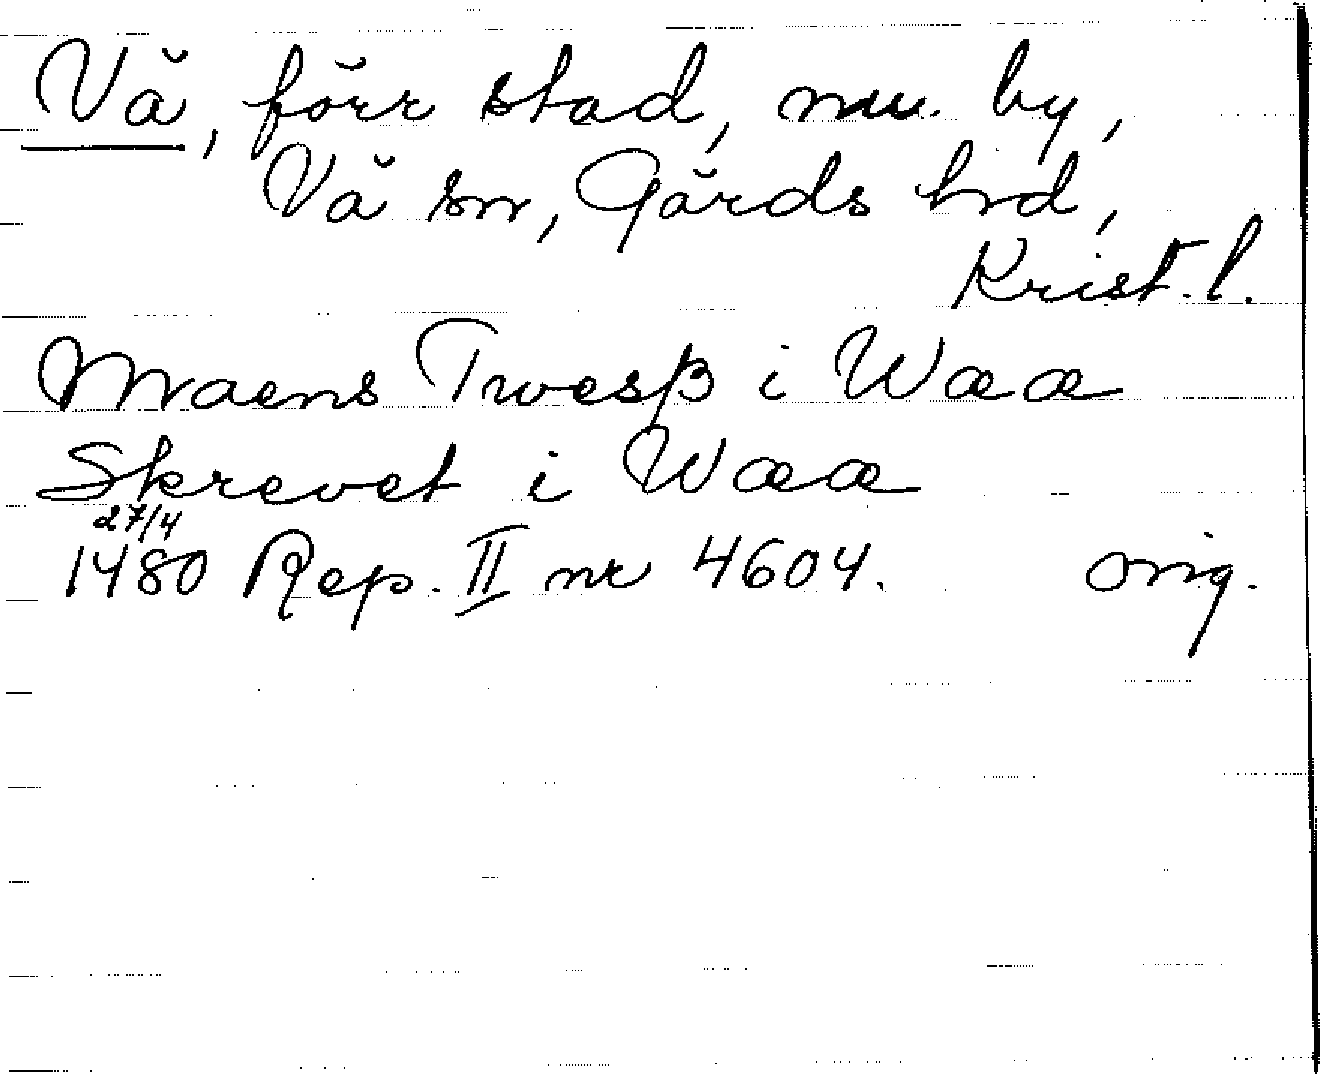 Vä, förr stad, nu by,
Vä sn, Gärds hrd,
Krist. l.
Maens Twesß i Wææ
Skrevet i Wææ
27/4
1480 Rep. II nr 4604. orig.